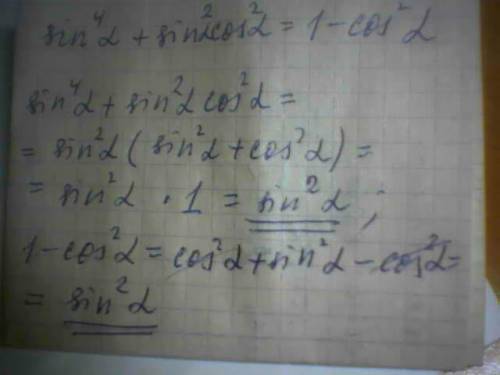 sin⁴α + sin²αcos²α = 1 - cos²α
sin⁴α + sin²α cos²α =
= sin²α ( sin²α + cos²α ) =
= sin²α · 1 = sin²α ;
1 - cos²α = cos²α + sin²α - cos²α =
= sin²α